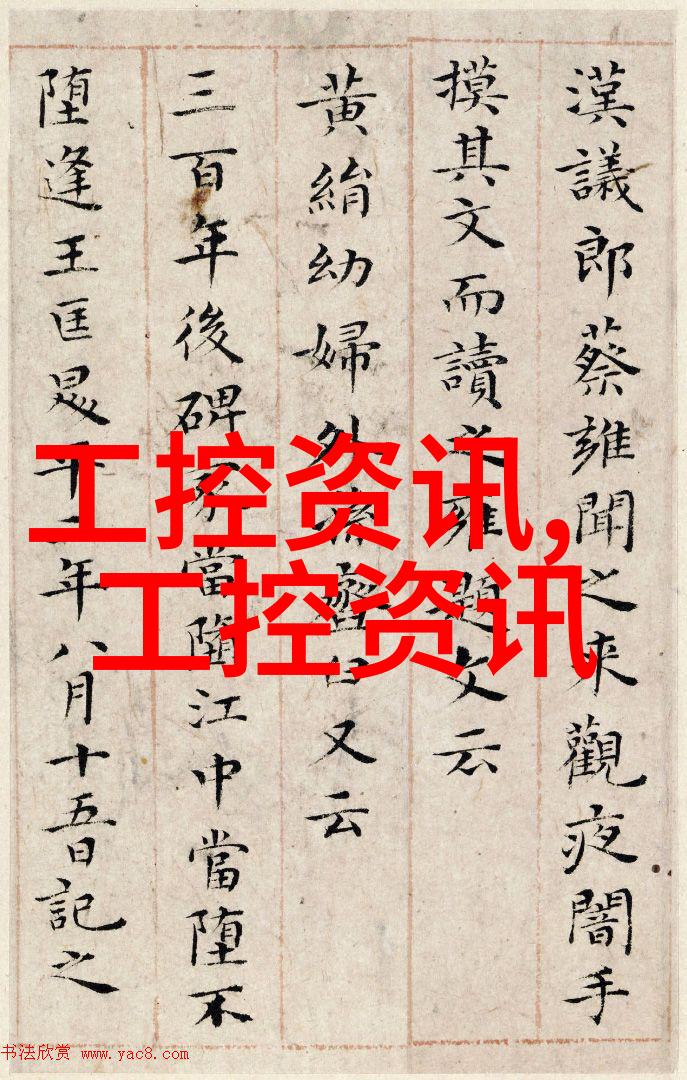 漢議郎蔡雍聞之来觀夜闇手
摸其文而讀之雍題文云
黃絹幼婦外臼又云
三百年後碑冢當墮江中當堕不
堕逢王匡昇平二年八月十五日記之
工控资讯,
工控资讯
书法欣赏 www.yac8.com